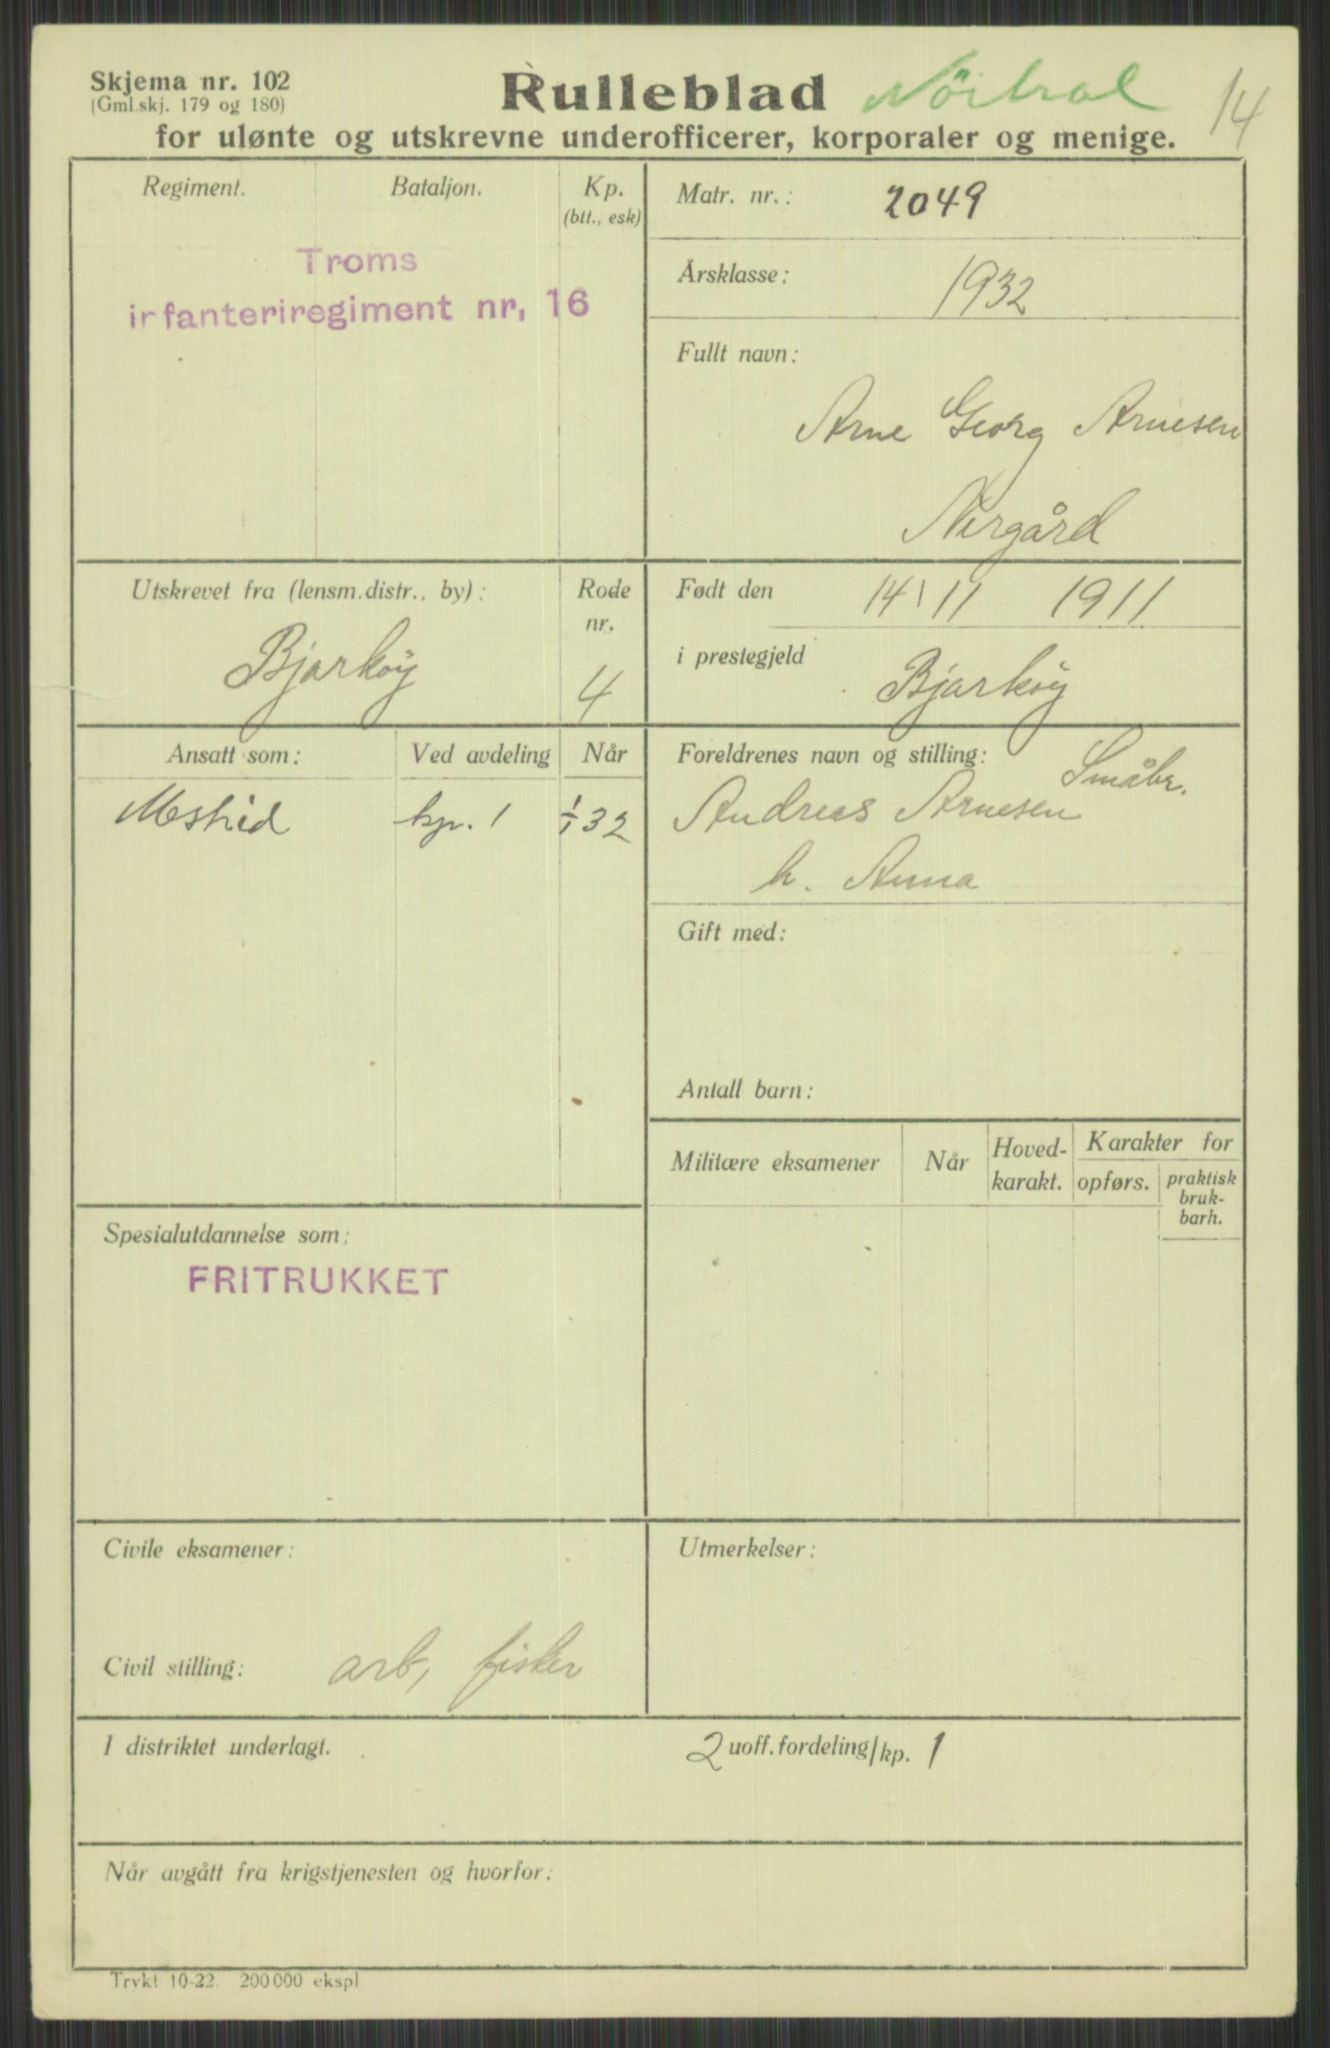 Skjema nr. 102
(Gml.skj. 179 og 180)
Rulleblad
14
for ulønte og utskrevne underofficerer, korporaler og menige.
Regiment. Bataljon. Kp.
(btt., esk)
Troms
infanteriregiment nr, 16
Matr. nr.: 2049
Årsklasse: 1932
Fullt navn:
Arne Georg Arnesen
Nergård
Utskrevet fra (lensm.distr., by): Rode nr.
Bjarköy 4
Født den 14/11 1911
i prestegjeld Bjarköy
Ansatt som: Ved avdeling Når
kp. 1 1/1 32
Foreldrenes navn og stilling: Småbr.
Andreas Arnesen
h. Anna
Gift med:
Antall barn:
Militære eksamener Når Hoved-karakt. Karakter for
opførs. praktisk bruk-barh.
Spesialutdannelse som:
FRITRUKKET
Civile eksamener:
Civil stilling: arb, fisker
Utmerkelser:
I distriktet underlagt.
2 uoff. fordeling/kp. 1
Når avgått fra krigstjenesten og hvorfor:
Trykt 10-22. 200 000 ekspl